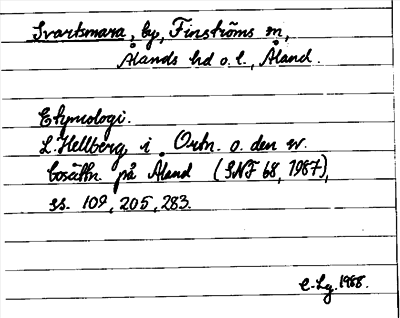 Svartsmara, by, Finströms sn,
Ålands hd o. l., Åland.
Etymologi.
L. Hellberg i Ortn. o. den sv.
bosättn. på Åland (SNF 68, 1987),
ss. 109, 205, 283.
C-Lg. 1988.